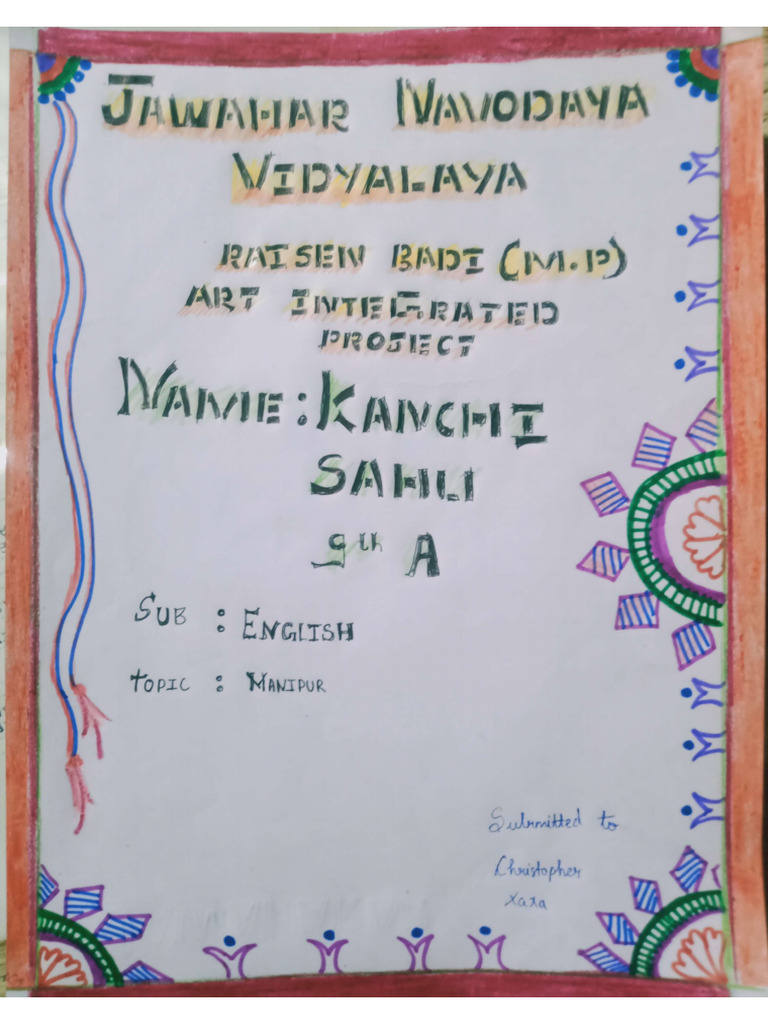 JAWAHAR NAVODAYA
VIDYALAYA
RAISEN BADI (M.P)
ART INTEGRATED
PROJECT
NAME: KANCHI
SAHU
9th A
SUB : ENGLISH
TOPIC : MANIPUR
Submitted to
Christopher
Xaxa